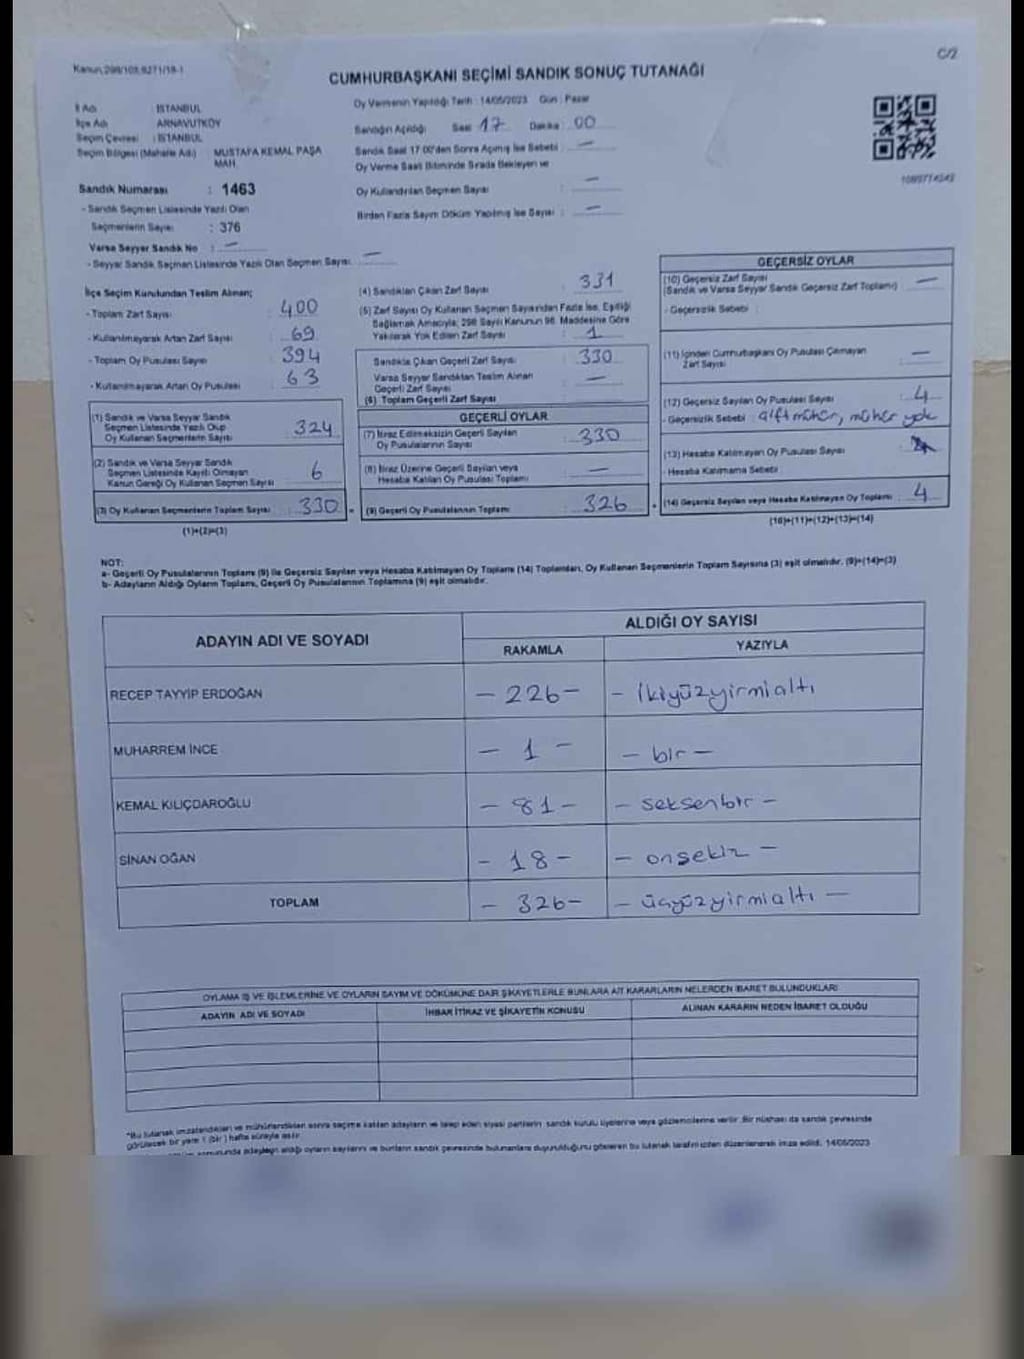 Kanun,298/103,6271/19-1
C/2
CUMHURBAŞKANI SEÇİMİ SANDIK SONUÇ TUTANAĞI
İl Adı : İSTANBUL
İlçe Adı : ARNAVUTKÖY
Seçim Çevresi : İSTANBUL
Seçim Bölgesi (Mahalle Adı) : MUSTAFA KEMAL PAŞA
MAH.
Sandık Numarası : 1463
- Sandık Seçmen Listesinde Yazılı Olan
Seçmenlerin Sayısı : 376
Varsa Seyyar Sandık No : —
- Seyyar Sandık Seçmen Listesinde Yazılı Olan Seçmen Sayısı —
Oy Vermenin Yapıldığı Tarih : 14/05/2023 Gün : Pazar
Sandığın Açıldığı Saat 17 Dakika : 00
Sandık Saat 17.00'den Sonra Açılmış İse Sebebi : —
Oy Verme Saati Bitiminde Sırada Bekleyen ve
Oy Kullandırılan Seçmen Sayısı : —
Birden Fazla Sayım Döküm Yapılmış İse Sayısı : —
İlçe Seçim Kurulundan Teslim Alınan;
- Toplam Zarf Sayısı : 400
- Kullanılmayarak Artan Zarf Sayısı : 69
- Toplam Oy Pusulası Sayısı : 394
- Kullanılmayarak Artan Oy Pusulası : 63
(1) Sandık ve Varsa Seyyar Sandık
Seçmen Listesinde Yazılı Olup
Oy Kullanan Seçmenlerin Sayısı : 324
(2) Sandık ve Varsa Seyyar Sandık
Seçmen Listesinde Kayıtlı Olmayan
Kanun Gereği Oy Kullanan Seçmen Sayısı : 6
(3) Oy Kullanan Seçmenlerin Toplam Sayısı : 330
(1)+(2)=(3)
(4) Sandıktan Çıkan Zarf Sayısı : 331
(5) Zarf Sayısı Oy Kullanan Seçmen Sayısından Fazla İse, Eşitliği
Sağlamak Amacıyla; 298 Sayılı Kanunun 98. Maddesine Göre
Yakılarak Yok Edilen Zarf Sayısı : 1
Sandıkta Çıkan Geçerli Zarf Sayısı : 330
Varsa Seyyar Sandıktan Teslim Alınan
Geçerli Zarf Sayısı : —
(6) Toplam Geçerli Zarf Sayısı
GEÇERLİ OYLAR
(7) İtiraz Edilmeksizin Geçerli Sayılan
Oy Pusulalarının Sayısı : 330
(8) İtiraz Üzerine Geçerli Sayılan veya
Hesaba Katılan Oy Pusulası Toplamı : —
(9) Geçerli Oy Pusulalarının Toplamı : 326
GEÇERSİZ OYLAR
(10) Geçersiz Zarf Sayısı
(Sandık ve Varsa Seyyar Sandık Geçersiz Zarf Toplamı) : —
- Geçersizlik Sebebi :
(11) İçinden Cumhurbaşkanı Oy Pusulası Çıkmayan
Zarf Sayısı : —
(12) Geçersiz Sayılan Oy Pusulası Sayısı : 4
- Geçersizlik Sebebi : çift mühür, mühür yok
(13) Hesaba Katılmayan Oy Pusulası Sayısı
- Hesaba Katılmama Sebebi :
(14) Geçersiz Sayılan veya Hesaba Katılmayan Oy Toplamı : 4
(10)+(11)+(12)+(13)=(14)
NOT:
a- Geçerli Oy Pusulalarının Toplamı (9) ile Geçersiz Sayılan veya Hesaba Katılmayan Oy Toplamı (14) Toplamları, Oy Kullanan Seçmenlerin Toplam Sayısına (3) eşit olmalıdır. (9)+(14)=(3)
b- Adayların Aldığı Oyların Toplamı, Geçerli Oy Pusulalarının Toplamına (9) eşit olmalıdır.
ADAYIN ADI VE SOYADI
ALDIĞI OY SAYISI
RAKAMLA YAZIYLA
RECEP TAYYİP ERDOĞAN — 226 — — ikiyüzyirmialtı
MUHARREM İNCE — 1 — — bir —
KEMAL KILIÇDAROĞLU — 81 — — seksenbir —
SİNAN OĞAN — 18 — — onsekiz —
TOPLAM — 326 — — üçyüzyirmialtı —
OYLAMA İŞ VE İŞLEMLERİNE VE OYLARIN SAYIM VE DÖKÜMÜNE DAİR ŞİKAYETLERLE BUNLARA AİT KARARLARIN NELERDEN İBARET BULUNDUKLARI
ADAYIN ADI VE SOYADI İHBAR İTİRAZ VE ŞİKAYETİN KONUSU ALINAN KARARIN NEDEN İBARET OLDUĞU
*Bu tutanak imzalandıktan ve mühürlendikten sonra seçime katılan adayların ve talep eden siyasi partilerin sandık kurulu üyelerine veya gözlemcilerine verilir. Bir nüshası da sandık çevresinde
görülecek bir yere 1 (bir) hafta süreyle asılır.
adayların aldığı oyların sayılarını ve bunların sandık çevresinde bulunanlara duyurulduğunu gösteren bu tutanak tarafımızdan düzenlenerek imza edildi. 14/05/2023